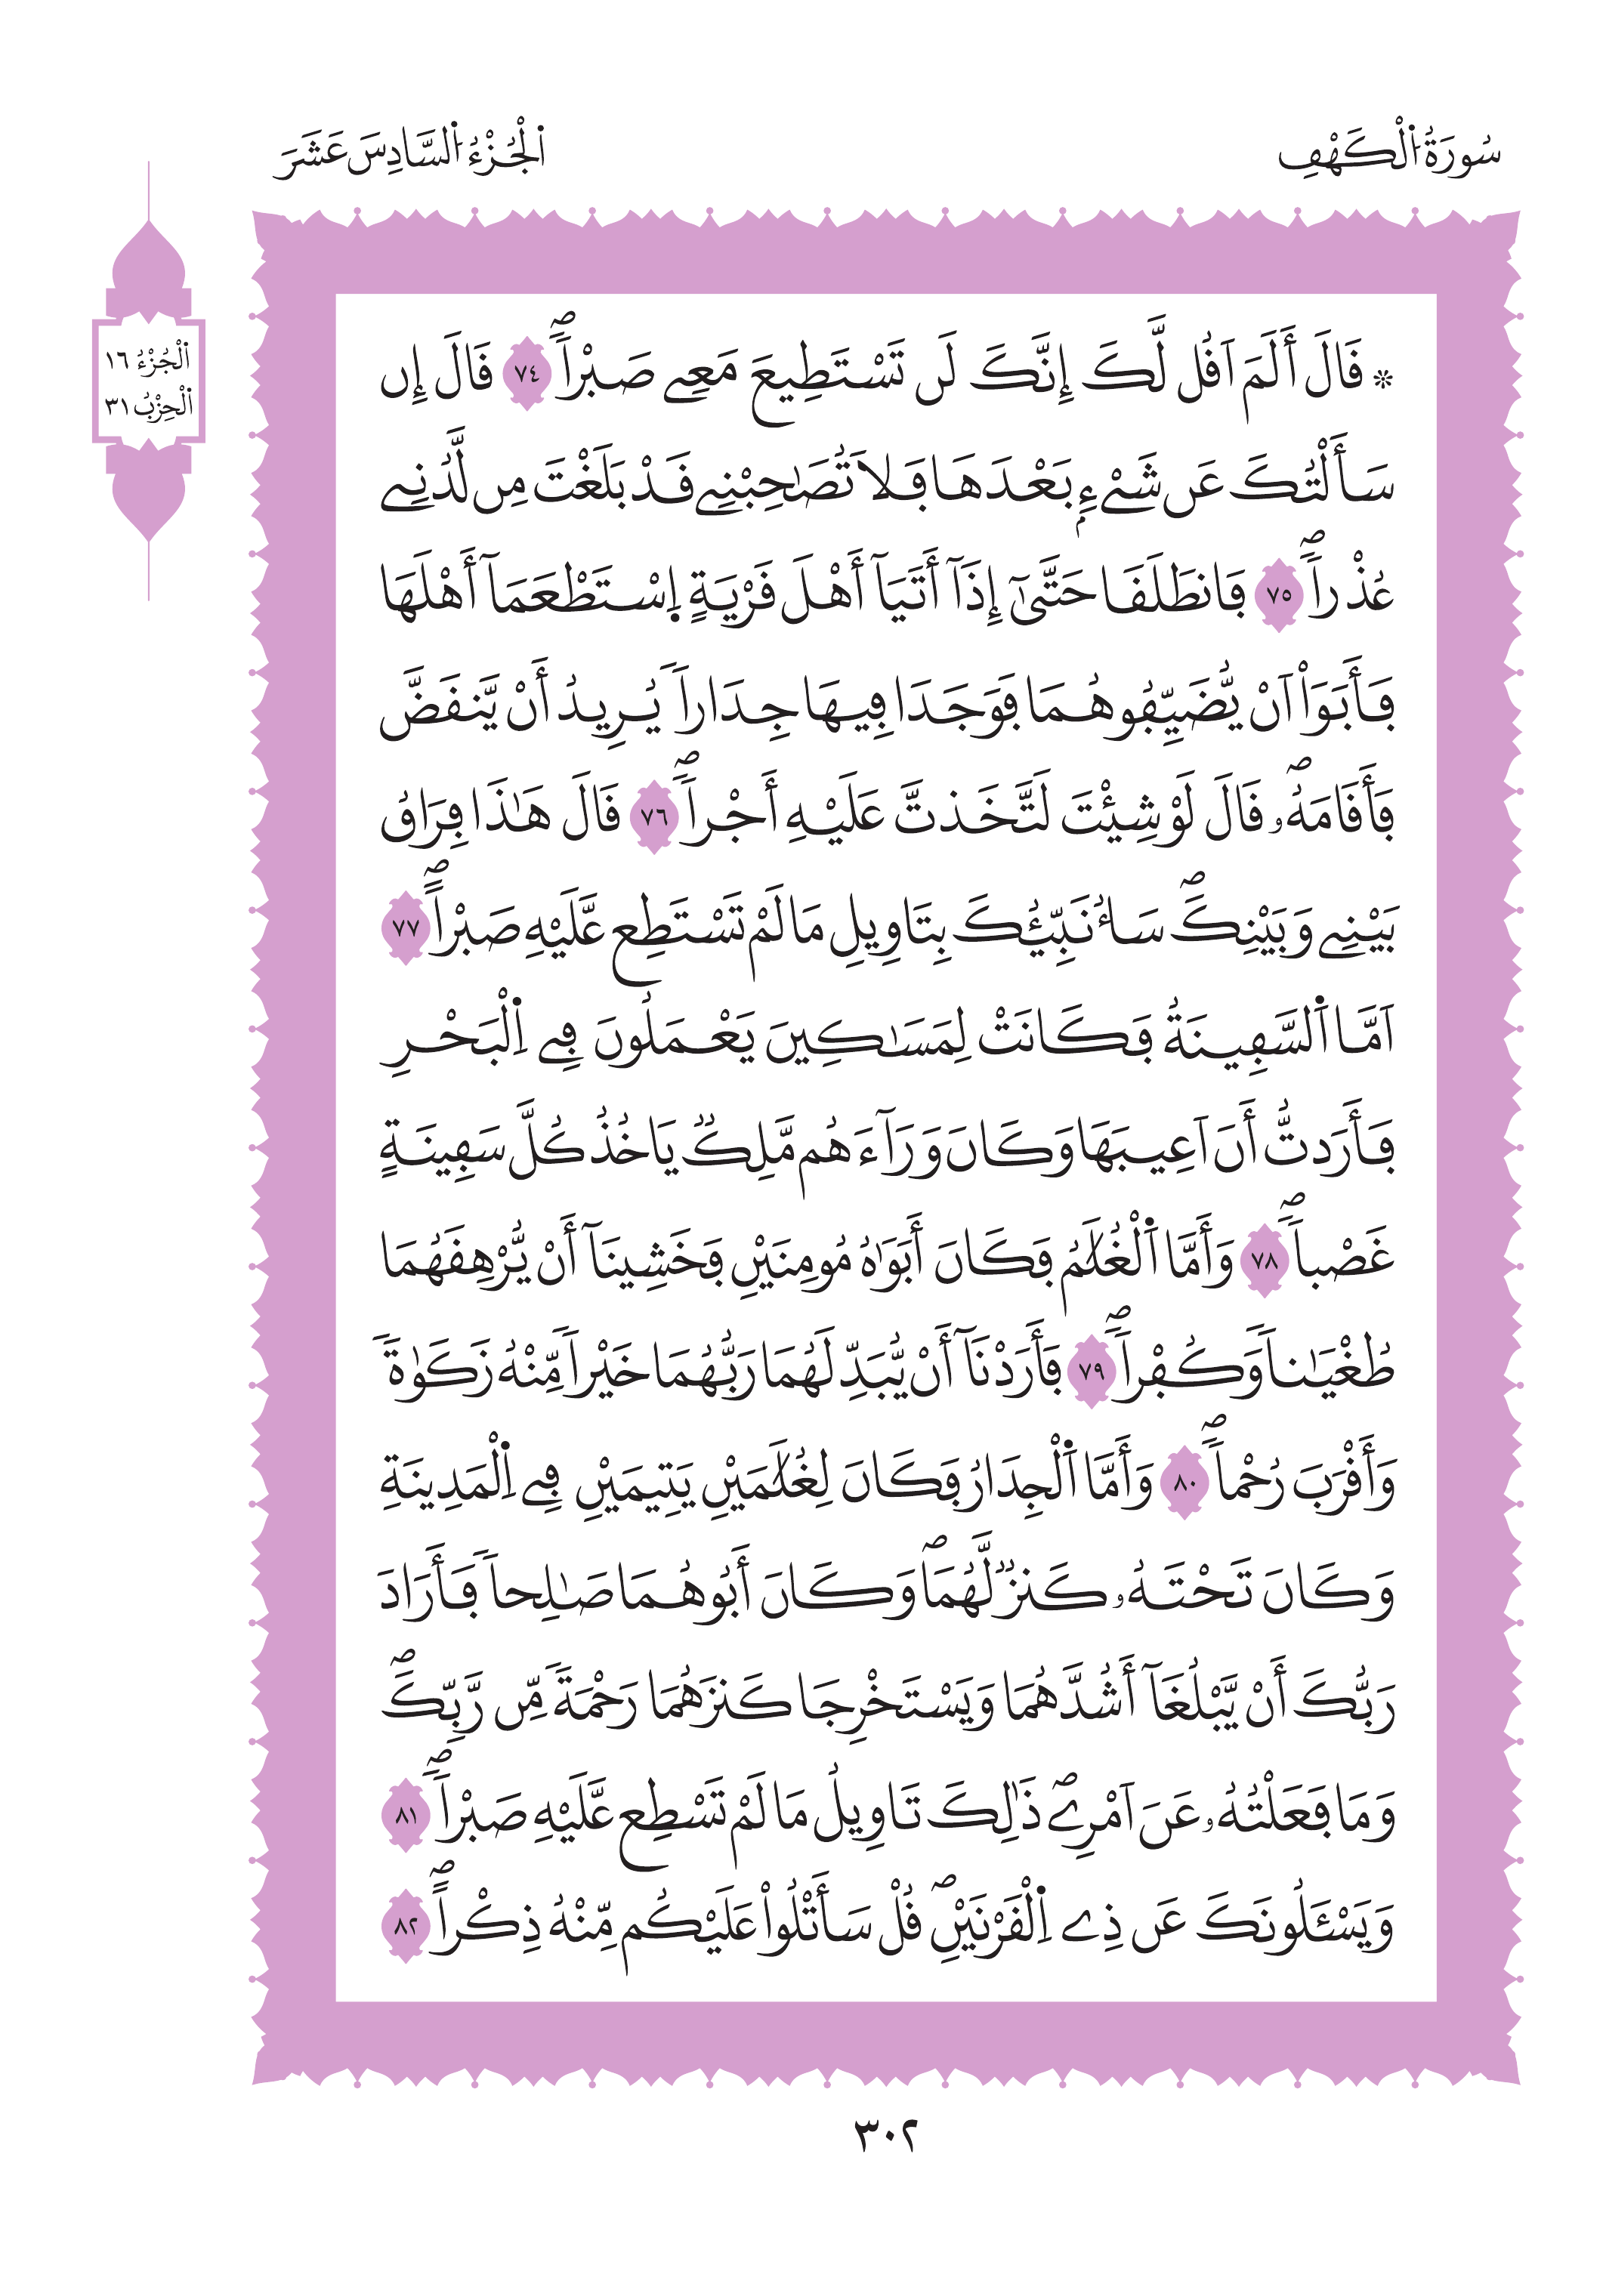 سُورَةُ اُ۬لْكَهْفِ
اَ۬لْجُزْءُ اُ۬لسَّادِسَ عَشَرَ
اَ۬لْجُزْءُ ١٦
اَ۬لْحِزْبُ ٣١
۞ قَالَ أَلَمَ اَقُل لَّكَ إِنَّكَ لَن تَسْتَطِيعَ مَعِے صَبْراࣰۖ ٧٤ قَالَ إِن
سَأَلْتُكَ عَن شَےْءِۢ بَعْدَهَا فَلَا تُصَٰحِبْنِے قَدْ بَلَغْتَ مِن لَّدُنِے
عُذْراࣰۖ ٧٥ فَانطَلَقَا حَتَّىٰٓ إِذَآ أَتَيَآ أَهْلَ قَرْيَةٍ اِ۪سْتَطْعَمَآ أَهْلَهَا
فَأَبَوَاْ اَنْ يُّضَيِّفُوهُمَا فَوَجَدَا فِيهَا جِدَاراࣰ يُرِيدُ أَنْ يَّنقَضَّ
فَأَقَامَهُۥۖ قَالَ لَوْ شِئْتَ لَتَّخَذتَّ عَلَيْهِ أَجْراࣰۖ ٧٦ قَالَ هَٰذَا فِرَاقُ
بَيْنِے وَبَيْنِكَۖ سَأُنَبِّئُكَ بِتَاوِيلِ مَا لَمْ تَسْتَطِع عَّلَيْهِ صَبْراًۖ ٧٧
اَمَّا اَ۬لسَّفِينَةُ فَكَانَتْ لِمَسَٰكِينَ يَعْمَلُونَ فِے اِ۬لْبَحْرِ
فَأَرَدتُّ أَنَ اَعِيبَهَا وَكَانَ وَرَآءَهُم مَّلِكࣱ يَاخُذُ كُلَّ سَفِينَةٍ
غَصْباࣰۖ ٧٨ وَأَمَّا اَ۬لْغُلَٰمُ فَكَانَ أَبَوَٰهُ مُومِنَيْنِ فَخَشِينَآ أَنْ يُّرْهِقَهُمَا
طُغْيَٰناࣰ وَكُفْراࣰۖ ٧٩ فَأَرَدْنَآ أَنْ يُّبَدِّلَهُمَا رَبُّهُمَا خَيْراࣰ مِّنْهُ زَكَوٰةࣰ
وَأَقْرَبَ رُحْماࣰۖ ٨٠ وَأَمَّا اَ۬لْجِدَارُ فَكَانَ لِغُلَٰمَيْنِ يَتِيمَيْنِ فِے اِ۬لْمَدِينَةِ
وَكَانَ تَحْتَهُۥ كَنزࣱ لَّهُمَاۖ وَكَانَ أَبُوهُمَا صَٰلِحاࣰ فَأَرَادَ
رَبُّكَ أَنْ يَّبْلُغَآ أَشُدَّهُمَا وَيَسْتَخْرِجَا كَنزَهُمَا رَحْمَةࣰ مِّن رَّبِّكَۖ
وَمَا فَعَلْتُهُۥ عَنَ اَمْرِےۖ ذَٰلِكَ تَاوِيلُ مَا لَمْ تَسْطِع عَّلَيْهِ صَبْراࣰۖ ٨١
وَيَسْـَٔلُونَكَ عَن ذِے اِ۬لْقَرْنَيْنِۖ قُلْ سَأَتْلُواْ عَلَيْكُم مِّنْهُ ذِكْراًۖ ٨٢
٣٠٢